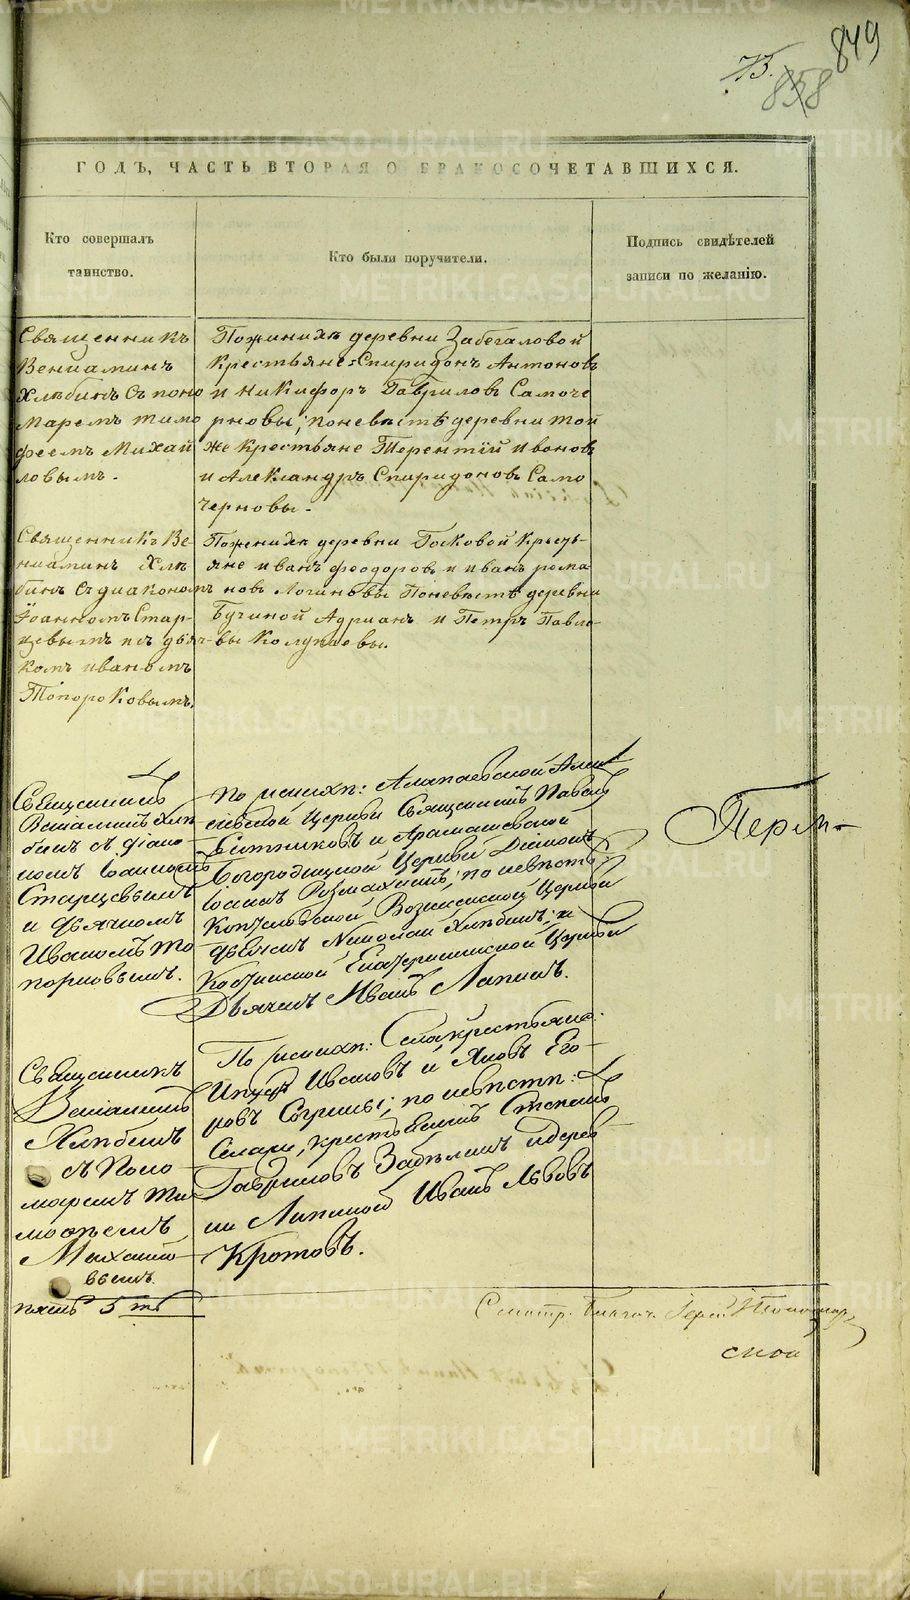 849
75.
858
ГОДЪ, ЧАСТЬ ВТОРАЯ О БРАКОСОЧЕТАВШИХСЯ.
Кто совершалъ
таинство.
Кто были поручители.
Подпись свидѣтелей
записи по желанію.
Священникъ
Вениаминъ
Хлѣбинъ съ поно
маремъ тимо
феемъ Михай
ловымъ.
Пожинихѣ деревни Забегаловой
крестьяне: Спиридонъ Антоновъ
и Никифоръ Гавриловъ Самоче
рновы; поневѣстѣ деревни той
же крестьяне Терентiй Ивановъ
и Александръ Спиридоновъ Само
черновы.
Священникъ Ве
ниаминъ Хлѣ
бинъ съ диакономъ
Iоанномъ Стар
цевымъ и съ дьяч
комъ иваномъ
Топорковымъ.
Поженихѣ деревни Госковой Крьсть-
яне иванъ феодоровъ и иванъ рома
новъ Логиновы Поневѣстѣ деревни
Бучиной Адрианъ и Петръ Павло-
вы Колупаевы.
Священникъ
Веніаминъ Хлѣ
бинъ съ діако
номъ Іоанномъ
Старцевымъ
и дьячкомъ
Иваномъ То
порковымъ.
По женихѣ: Алапаевской Алекс
евской Церкви Священникъ Павелъ
и Арамашевской
Богородицкой Церкви Діаконъ
Іоаннъ; по невѣстѣ
Вознесенской Церкви
Николай Хлѣбинъ; и
Екатерининской Церкви
Дьячекъ Иванъ Лапинъ.
Перм-
Священникъ
Веніаминъ
Хлѣбинъ
съ Поно-
маремъ Ти-
мофеемъ
Михайло-
вымъ.
По женихѣ: Села крестьяне:
Ивановъ и Яковъ Его-
ровъ; по невѣстѣ:
Села, крестьянинъ Степанъ
Гавриловъ и дерев
ни Лапиной Иванъ Львовъ
Кротовъ.
пять 5 ть
Смотр. Благоч. Іерей
METRIKI.GASO-URAL.RU